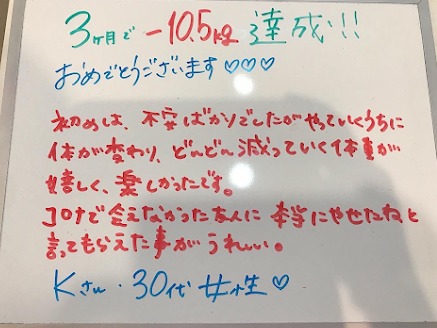 3ヶ月で -10.5kg 達成!!
おめでとうございます♡♡♡
初めは、不安ばかりでしたがやっていくうちに
体が変わり、どんどん減っていく体重が
嬉しく、楽しかったです。
コロナで会えなかった友人に本当にやせたねと
言ってもらえた事がうれしい。
Kさん・30代 女性♡